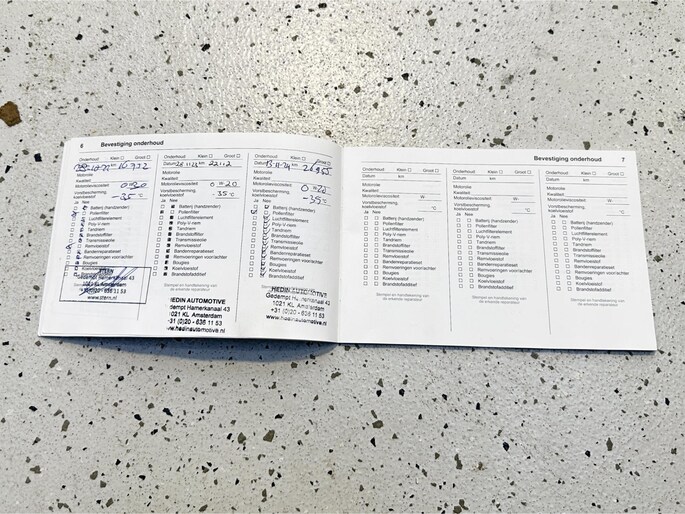 6 Bevestiging onderhoud
Onderhoud: Klein Groot
km 16.732
Motorolie
Kwaliteit
Motorolieviscositeit 0 W 20
Vorstbescherming
koelvloeistof -35 °C
Ja Nee
Batterij (handzender)
Pollenfilter
Luchtfilterelement
Poly-V-riem
Tandriem
Brandstoffilter
Transmissieolie
Remvloeistof
Bandenreparatieset
Remvoeringen voor/achter
Bougies
Koelvloeistof
Gedempt Hamerkanaal 43
1021 KL Amsterdam
www.stern.nl
Onderhoud: Klein Groot
Datum km 22112
Motorolie
Kwaliteit
Motorolieviscositeit 0 W 20
Vorstbescherming
koelvloeistof -35 °C
Ja Nee
Batterij (handzender)
Pollenfilter
Luchtfilterelement
Poly-V-riem
Tandriem
Brandstoffilter
Transmissieolie
Remvloeistof
Bandenreparatieset
Remvoeringen voor/achter
Bougies
Koelvloeistof
Brandstofadditief
HEDIN AUTOMOTIVE
Gedempt Hamerkanaal 43
1021 KL Amsterdam
+31 (0)20 - 636 11 53
www.hedinautomotive.nl
Onderhoud: Klein Groot
Datum 13-11-24 km 26.955
Motorolie
Kwaliteit
Motorolieviscositeit 0 W 20
Vorstbescherming
koelvloeistof -35 °C
Ja Nee
Batterij (handzender)
Pollenfilter
Luchtfilterelement
Poly-V-riem
Tandriem
Brandstoffilter
Transmissieolie
Remvloeistof
Bandenreparatieset
Remvoeringen voor/achter
Bougies
Koelvloeistof
Brandstofadditief
HEDIN AUTOMOTIVE
Gedempt Hamerkanaal 43
1021 KL Amsterdam
+31 (0)20 - 636 11 53
www.hedinautomotive.nl
Bevestiging onderhoud 7
Onderhoud: Klein Groot
Datum km
Motorolie
Kwaliteit
Motorolieviscositeit W-
Vorstbescherming
koelvloeistof °C
Ja Nee
Batterij (handzender)
Pollenfilter
Luchtfilterelement
Poly-V-riem
Tandriem
Brandstoffilter
Transmissieolie
Remvloeistof
Bandenreparatieset
Remvoeringen voor/achter
Bougies
Koelvloeistof
Brandstofadditief
Stempel en handtekening van
de erkende reparateur
Onderhoud: Klein Groot
Datum km
Motorolie
Kwaliteit
Motorolieviscositeit W-
Vorstbescherming
koelvloeistof °C
Ja Nee
Batterij (handzender)
Pollenfilter
Luchtfilterelement
Poly-V-riem
Tandriem
Brandstoffilter
Transmissieolie
Remvloeistof
Bandenreparatieset
Remvoeringen voor/achter
Bougies
Koelvloeistof
Brandstofadditief
Stempel en handtekening van
de erkende reparateur
Onderhoud: Klein Groot
Datum km
Motorolie
Kwaliteit
Motorolieviscositeit W-
Vorstbescherming
koelvloeistof °C
Ja Nee
Batterij (handzender)
Pollenfilter
Luchtfilterelement
Poly-V-riem
Tandriem
Brandstoffilter
Transmissieolie
Remvloeistof
Bandenreparatieset
Remvoeringen voor/achter
Bougies
Koelvloeistof
Brandstofadditief
Stempel en handtekening van
de erkende reparateur